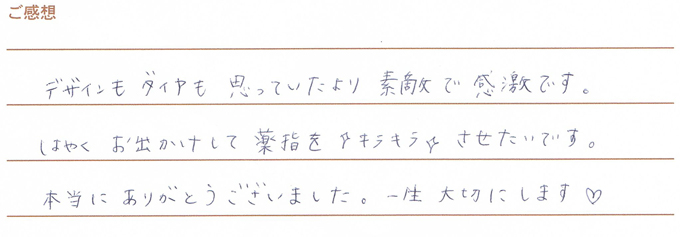 ご感想
デザインも ダイヤも 思っていたより 素敵で 感激です。
はやく お出かけして 薬指を ☆キラキラ☆ させたいです。
本当に ありがとうございました。一生 大切にします♡